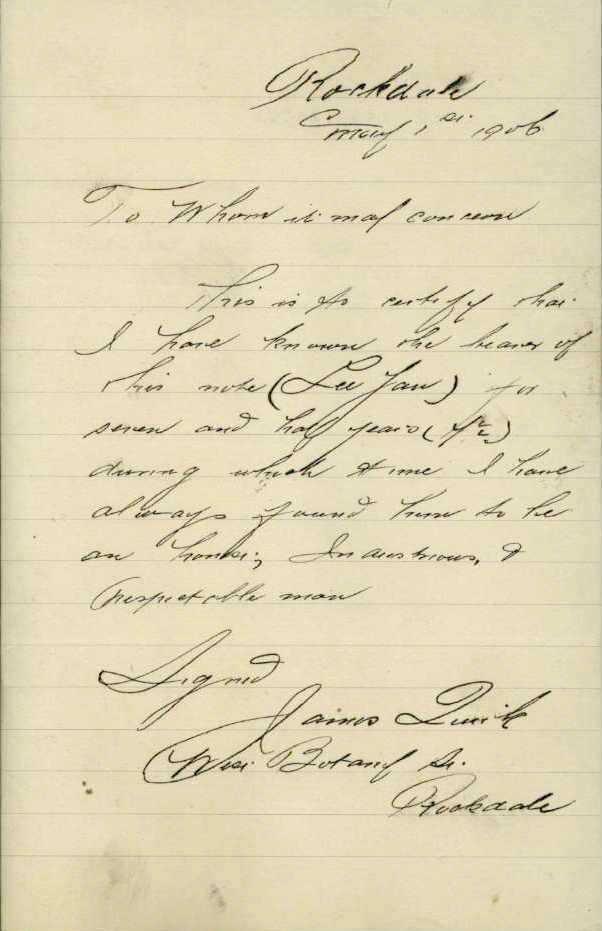 Rockdale
May 1st 1906
To Whom it may concern
This is to certify that
I have known the bearer of
this note (Lee Yan) for
seven and half years (7½)
during which time I have
always found him to be
an honest, Industrious, &
respectable man
Signed
James Quirk
West Botany St.
Rockdale